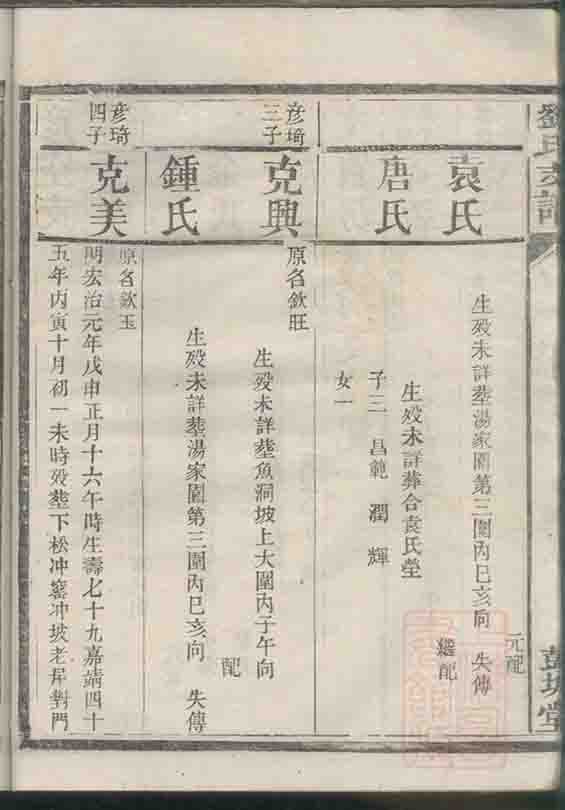 劉氏宗譜
彭城堂
元配
袁氏
生殁未詳塟湯家園第三圍內巳亥向 失傳
繼配
唐氏
生殁未詳葬合袁氏塋
子三 昌範 潤 輝
女一
彦埼三子
克興
原名欽旺
生殁未詳塟魚洞坡上大圍內子午向
配
鍾氏
生殁未詳塟湯家園第三圍內巳亥向 失傳
彦琦四子
克美
原名欽玉
明宏治元年戊申正月十六午時生壽七十九嘉靖四十
五年丙寅十月初一未時殁塟下松冲窰冲坡老屋對門